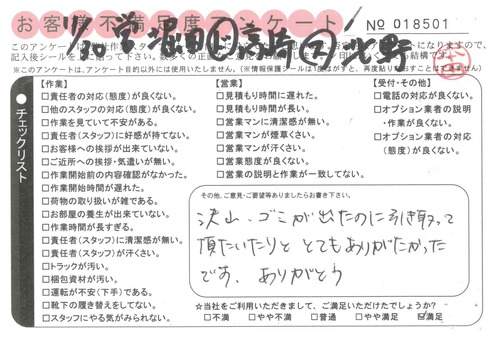 お客様不満足度アンケート
No 018501
11/30 営 堀田 ビ 高崎 ア 北野
このアンケートは
記入後シールを
※このアンケートは、アンケート目的以外には使用いたしません。(※情報保護シールは1度はがすと、再度貼りなおすことはできません)
チェックリスト
【作業】
□責任者の対応(態度)が良くない。
□他のスタッフの対応(態度)が良くない。
□作業を見ていて不安がある。
□責任者(スタッフ)に好感が持てない。
□お客様への挨拶が出来ていない。
□ご近所への挨拶・気遣いが無い。
□作業開始前の内容確認がなかった。
□作業開始時間が遅れた。
□荷物の取り扱いが雑である。
□お部屋の養生が出来ていない。
□作業時間が長すぎる。
□責任者(スタッフ)に清潔感が無い。
□責任者(スタッフ)が汗くさい。
□トラックが汚い。
□梱包資材が汚い。
□運転が不安(下手)である。
□靴下の履き替えをしてない。
□スタッフにやる気がみられない。
【営業】
□見積もり時間に遅れた。
□見積もり時間が長い。
□営業マンに清潔感が無い。
□営業マンが煙草くさい。
□営業マンが汗くさい。
□営業態度が良くない。
□営業の説明と作業が一致してない。
【受付・その他】
□電話の対応が良くない。
□オプション業者の説明
・作業が良くない。
□オプション業者の対応
(態度)が良くない。
その他、ご意見・ご要望等ありましたらお書き下さい。
沢山、ゴミが出たのに引き取って
頂たいたりと とてもありがたかった
です。 ありがとう
☆当社をご利用いただきまして、ご満足いただけたでしょうか?
□不満 □やや不満 □普通 □やや満足 ☑満足